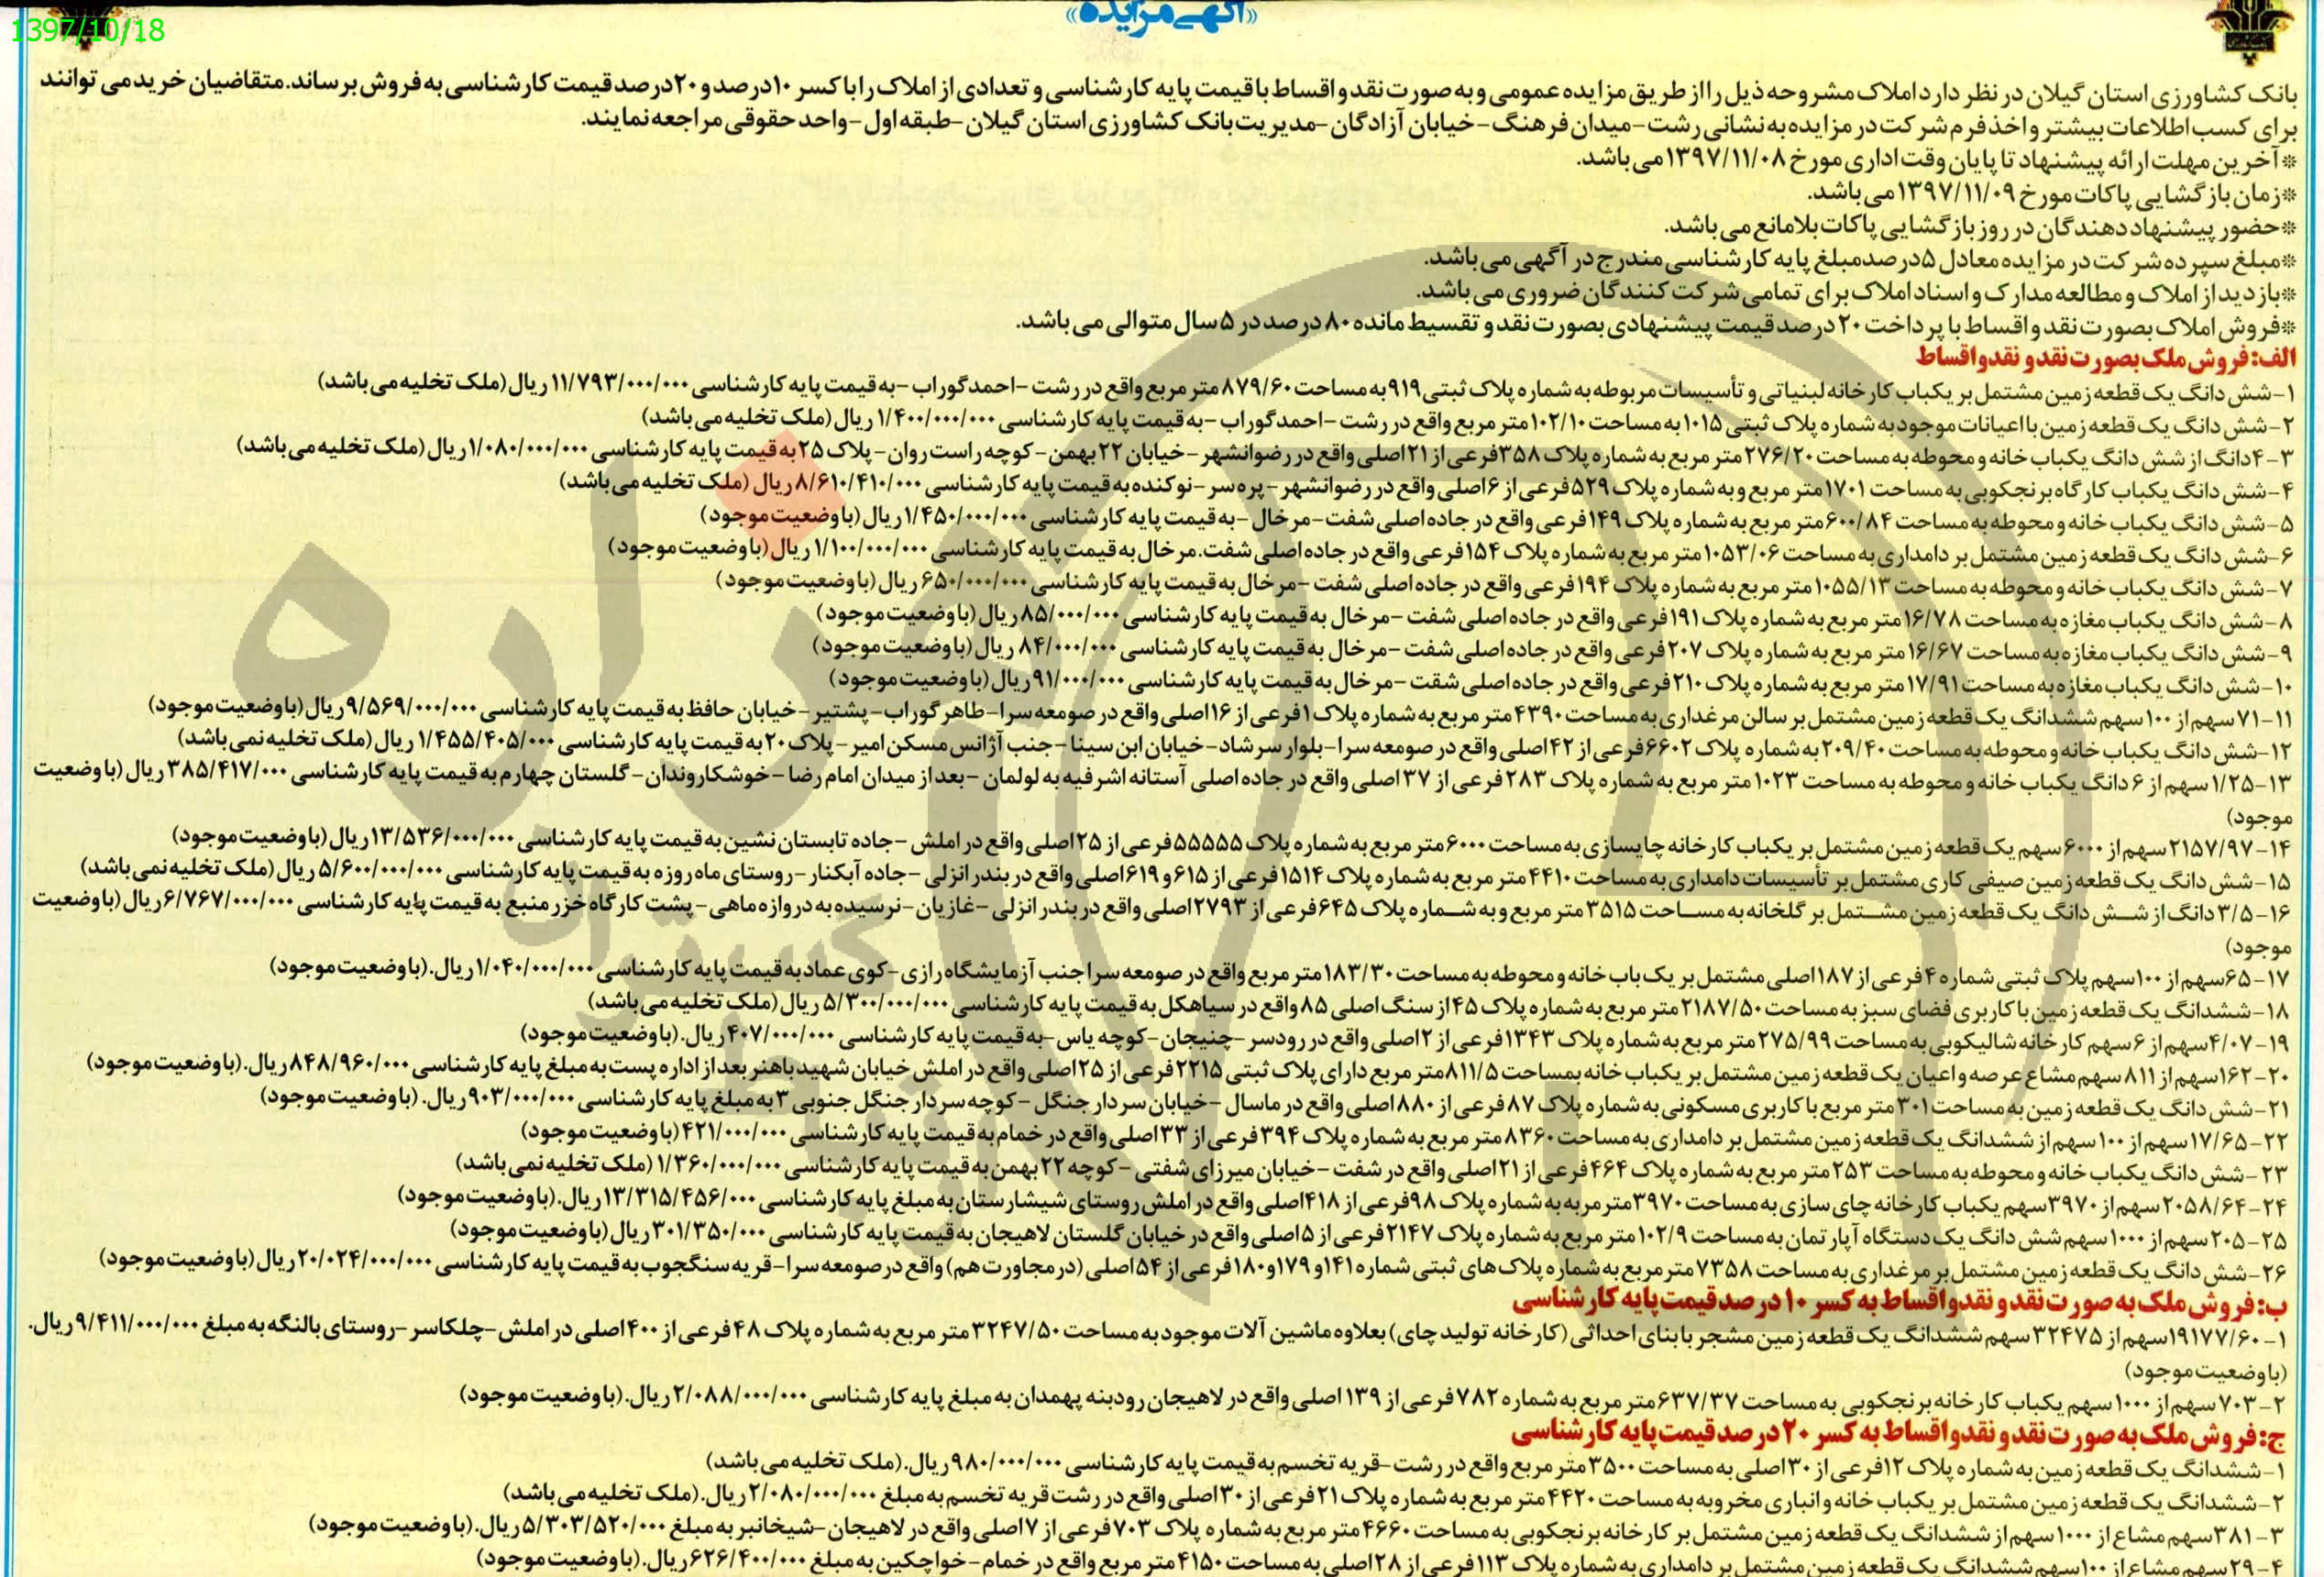 1397/10/18
«آگهی مزایده»
بانک کشاورزی استان گیلان در نظر دارد املاک مشروحه ذیل را از طریق مزایده عمومی و به صورت نقد و اقساط با قیمت پایه کارشناسی و تعدادی از املاک را با کسر ۱۰ درصد و ۲۰ درصد قیمت کارشناسی به فروش برساند. متقاضیان خرید می توانند
برای کسب اطلاعات بیشتر و اخذ فرم شرکت در مزایده به نشانی رشت - میدان فرهنگ - خیابان آزادگان - مدیریت بانک کشاورزی استان گیلان - طبقه اول - واحد حقوقی مراجعه نمایند.
*آخرین مهلت ارائه پیشنهاد تا پایان وقت اداری مورخ ۱۳۹۷/۱۱/۰۸ می باشد.
*زمان بازگشایی پاکات مورخ ۱۳۹۷/۱۱/۰۹ می باشد.
*حضور پیشنهاد دهندگان در روز بازگشایی پاکات بلامانع می باشد.
*مبلغ سپرده شرکت در مزایده معادل ۵ درصد مبلغ پایه کارشناسی مندرج در آگهی می باشد.
*بازدید از املاک و مطالعه مدارک و اسناد املاک برای تمامی شرکت کنندگان ضروری می باشد.
*فروش املاک بصورت نقد و اقساط با پرداخت ۲۰ درصد قیمت پیشنهادی بصورت نقد و تقسیط مانده ۸۰ درصد در ۵ سال متوالی می باشد.
الف: فروش ملک بصورت نقد و نقد و اقساط
۱- شش دانگ یک قطعه زمین مشتمل بر یکباب کارخانه لبنیاتی و تأسیسات مربوطه به شماره پلاک ثبتی ۹۱۹ به مساحت ۸۷۹/۶۰ متر مربع واقع در رشت - احمدگوراب - به قیمت پایه کارشناسی ۱۱/۷۹۳/۰۰۰/۰۰۰ ریال (ملک تخلیه می باشد)
۲- شش دانگ یک قطعه زمین با اعیانات موجود به شماره پلاک ثبتی ۱۰۱۵ به مساحت ۱۰۲/۱۰ متر مربع واقع در رشت - احمدگوراب - به قیمت پایه کارشناسی ۱/۴۰۰/۰۰۰/۰۰۰ ریال (ملک تخلیه می باشد)
۳- ۴ دانگ از شش دانگ یکباب خانه و محوطه به مساحت ۲۷۶/۲۰ متر مربع به شماره پلاک ۳۵۸ فرعی از ۲۱ اصلی واقع در رضوانشهر - خیابان ۲۲ بهمن - کوچه راست روان - پلاک ۲۵ به قیمت پایه کارشناسی ۱/۰۸۰/۰۰۰/۰۰۰ ریال (ملک تخلیه می باشد)
۴- شش دانگ یکباب کارگاه برنجکوبی به مساحت ۱۷۰۱ متر مربع و به شماره پلاک ۵۲۹ فرعی از ۶ اصلی واقع در رضوانشهر - پره سر - نوکنده به قیمت پایه کارشناسی ۸/۶۱۰/۴۱۰/۰۰۰ ریال (ملک تخلیه می باشد)
۵- شش دانگ یکباب خانه و محوطه به مساحت ۶۰۰/۸۴ متر مربع به شماره پلاک ۱۴۹ فرعی واقع در جاده اصلی شفت - مرخال - به قیمت پایه کارشناسی ۱/۴۵۰/۰۰۰/۰۰۰ ریال (با وضعیت موجود)
۶- شش دانگ یک قطعه زمین مشتمل بر دامداری به مساحت ۱۰۵۳/۰۶ متر مربع به شماره پلاک ۱۵۴ فرعی واقع در جاده اصلی شفت. مرخال به قیمت پایه کارشناسی ۱/۱۰۰/۰۰۰/۰۰۰ ریال (با وضعیت موجود)
۷- شش دانگ یکباب خانه و محوطه به مساحت ۱۰۵۵/۱۳ متر مربع به شماره پلاک ۱۹۴ فرعی واقع در جاده اصلی شفت - مرخال به قیمت پایه کارشناسی ۶۵۰/۰۰۰/۰۰۰ ریال (با وضعیت موجود)
۸- شش دانگ یکباب مغازه به مساحت ۱۶/۷۸ متر مربع به شماره پلاک ۱۹۱ فرعی واقع در جاده اصلی شفت - مرخال به قیمت پایه کارشناسی ۸۵/۰۰۰/۰۰۰ ریال (با وضعیت موجود)
۹- شش دانگ یکباب مغازه به مساحت ۱۶/۶۷ متر مربع به شماره پلاک ۲۰۷ فرعی واقع در جاده اصلی شفت - مرخال به قیمت پایه کارشناسی ۸۴/۰۰۰/۰۰۰ ریال (با وضعیت موجود)
۱۰- شش دانگ یکباب مغازه به مساحت ۱۷/۹۱ متر مربع به شماره پلاک ۲۱۰ فرعی واقع در جاده اصلی شقت - مرخال به قیمت پایه کارشناسی ۹۱/۰۰۰/۰۰۰ ریال (با وضعیت موجود)
۱۱- ۷۱ سهم از ۱۰۰ سهم ششدانگ یک قطعه زمین مشتمل بر سالن مرغداری به مساحت ۴۳۹۰ متر مربع به شماره پلاک ۱ فرعی از ۱۶ اصلی واقع در صومعه سرا - طاهر گوراب - پشتیر - خیابان حافظ به قیمت پایه کارشناسی ۹/۵۶۹/۰۰۰/۰۰۰ ریال (با وضعیت موجود)
۱۲- شش دانگ یکباب خانه و محوطه به مساحت ۲۰۹/۴۰ به شماره پلاک ۶۶۰۲ فرعی از ۴۲ اصلی واقع در صومعه سرا - بلوار سرشاد - خیابان ابن سینا - جنب آژانس مسکن امیر - پلاک ۲۰ به قیمت پایه کارشناسی ۱/۴۵۵/۴۰۵/۰۰۰ ریال (ملک تخلیه نمی باشد)
۱۳- ۱/۲۵ سهم از ۶ دانگ یکباب خانه و محوطه به مساحت ۱۰۲۳ متر مربع به شماره پلاک ۲۸۳ فرعی از ۳۷ اصلی واقع در جاده اصلی آستانه اشرفیه به لولمان - بعد از میدان امام رضا - خوشکاروندان - گلستان چهارم به قیمت پایه کارشناسی ۳۸۵/۴۱۷/۰۰۰ ریال (با وضعیت
موجود)
۱۴- ۲۱۵۷/۹۷ سهم از ۶۰۰۰ سهم یک قطعه زمین مشتمل بر یکباب کارخانه چایسازی به مساحت ۶۰۰۰ متر مربع به شماره پلاک ۵۵۵۵۵ فرعی از ۲۵ اصلی واقع در املش - جاده تابستان نشین به قیمت پایه کارشناسی ۱۳/۵۳۶/۰۰۰/۰۰۰ ریال (با وضعیت موجود)
۱۵- شش دانگ یک قطعه زمین صیفی کاری مشتمل بر تأسیسات دامداری به مساحت ۴۴۱۰ متر مربع به شماره پلاک ۱۵۱۴ فرعی از ۶۱۵ و ۶۱۹ اصلی واقع در بندر انزلی - جاده آبکنار - روستای ماه روزه به قیمت پایه کارشناسی ۵/۶۰۰/۰۰۰/۰۰۰ ریال (ملک تخلیه نمی باشد)
۱۶- ۳/۵ دانگ از شش دانگ یک قطعه زمین مشتمل بر گلخانه به مساحت ۳۵۱۵ متر مربع و به شماره پلاک ۶۴۵ فرعی از ۲۷۹۳ اصلی واقع در بندر انزلی - غازیان - نرسیده به دروازه ماهی - پشت کارگاه خزر منبع به قیمت پایه کارشناسی ۶/۷۶۷/۰۰۰/۰۰۰ ریال (با وضعیت
موجود)
۱۷- ۶۵ سهم از ۱۰۰ سهم پلاک ثبتی شماره ۴ فرعی از ۱۸۷ اصلی مشتمل بر یک باب خانه و محوطه به مساحت ۱۸۳/۳۰ متر مربع واقع در صومعه سرا جنب آزمایشگاه رازی - کوی عماد به قیمت پایه کارشناسی ۱/۰۴۰/۰۰۰/۰۰۰ ریال. (با وضعیت موجود)
۱۸- ششدانگ یک قطعه زمین با کاربری فضای سبز به مساحت ۲۱۸۷/۵۰ متر مربع به شماره پلاک ۴۵ از سنگ اصلی ۸۵ واقع در سیاهکل به قیمت پایه کارشناسی ۵/۳۰۰/۰۰۰/۰۰۰ ریال (ملک تخلیه می باشد)
۱۹- ۴/۰۷ سهم از ۶ سهم کارخانه شالیکوبی به مساحت ۲۷۵/۹۹ متر مربع به شماره پلاک ۱۳۴۳ فرعی از ۲ اصلی واقع در رودسر - چنیجان - کوچه یاس - به قیمت پایه کارشناسی ۴۰۷/۰۰۰/۰۰۰ ریال. (با وضعیت موجود)
۲۰- ۱۶۲ سهم از ۸۱۱ سهم مشاع عرصه و اعیان یک قطعه زمین مشتمل بر یکباب خانه بمساحت ۸۱۱/۵ متر مربع دارای پلاک ثبتی ۲۲۱۵ فرعی از ۲۵ اصلی واقع در املش خیابان شهید باهنر بعد از اداره پست به مبلغ پایه کارشناسی ۸۴۸/۹۶۰/۰۰۰ ریال. (با وضعیت موجود)
۲۱- شش دانگ یک قطعه زمین به مساحت ۳۰۱ متر مربع با کاربری مسکونی به شماره پلاک ۸۷ فرعی از ۸۸۰ اصلی واقع در ماسال - خیابان سردار جنگل - کوچه سردار جنگل جنوبی ۳ به مبلغ پایه کارشناسی ۹۰۳/۰۰۰/۰۰۰ ریال. (با وضعیت موجود)
۲۲- ۱۷/۶۵ سهم از ۱۰۰ سهم از ششدانگ یک قطعه زمین مشتمل بر دامداری به مساحت ۸۳۶۰ متر مربع به شماره پلاک ۳۹۴ فرعی از ۳۳ اصلی واقع در خمام به قیمت پایه کارشناسی ۴۲۱/۰۰۰/۰۰۰ (با وضعیت موجود)
۲۳- شش دانگ یکباب خانه و محوطه به مساحت ۲۵۳ متر مربع به شماره پلاک ۴۶۴ فرعی از ۲۱ اصلی واقع در شفت - خیابان میرزای شفتی - کوچه ۲۲ بهمن به قیمت پایه کارشناسی ۱/۳۶۰/۰۰۰/۰۰۰ (ملک تخلیه نمی باشد)
۲۴- ۲۰۵۸/۶۴ سهم از ۳۹۷۰ سهم یکباب کارخانه چای سازی به مساحت ۳۹۷۰ متر مربه به شماره پلاک ۹۸ فرعی از ۴۱۸ اصلی واقع در املش روستای شیشارستان به مبلغ پایه کارشناسی ۱۳/۳۱۵/۴۵۶/۰۰۰ ریال. (با وضعیت موجود)
۲۵- ۲۰۵ سهم از ۱۰۰۰ سهم شش دانگ یک دستگاه آپارتمان به مساحت ۱۰۲/۹ متر مربع به شماره پلاک ۲۱۴۷ فرعی از ۵ اصلی واقع در خیابان گلستان لاهیجان به قیمت پایه کارشناسی ۳۰۱/۳۵۰/۰۰۰ ریال (با وضعیت موجود)
۲۶- شش دانگ یک قطعه زمین مشتمل بر مرغداری به مساحت ۷۳۵۸ متر مربع به شماره پلاک های ثبتی شماره ۱۴۱ و ۱۷۹ و ۱۸۰ فرعی از ۵۴ اصلی (در مجاورت هم) واقع در صومعه سرا - قریه سنگجوب به قیمت پایه کارشناسی ۲۰/۰۲۴/۰۰۰/۰۰۰ ریال (با وضعیت موجود)
ب: فروش ملک به صورت نقد و نقد و اقساط به کسر ۱۰ درصد قیمت پایه کارشناسی
۱- ۱۹۱۷۷/۶۰ سهم از ۳۲۴۷۵ سهم ششدانگ یک قطعه زمین مشجر با بنای احداثی (کارخانه تولید چای) بعلاوه ماشین آلات موجود به مساحت ۳۲۴۷/۵۰ متر مربع به شماره پلاک ۴۸ فرعی از ۴۰۰ اصلی در املش - چلکاسر - روستای بالنگه به مبلغ ۹/۴۱۱/۰۰۰/۰۰۰ ریال.
(با وضعیت موجود)
۲- ۷۰۳ سهم از ۱۰۰۰ سهم یکباب کارخانه برنجکوبی به مساحت ۶۳۷/۳۷ متر مربع به شماره ۷۸۲ فرعی از ۱۳۹ اصلی واقع در لاهیجان رودبنه پهمدان به مبلغ پایه کارشناسی ۲/۰۸۸/۰۰۰/۰۰۰ ریال. (با وضعیت موجود)
ج: فروش ملک به صورت نقد و نقد و اقساط به کسر ۲۰ درصد قیمت پایه کارشناسی
۱- ششدانگ یک قطعه زمین به شماره پلاک ۱۲ فرعی از ۳۰ اصلی به مساحت ۳۵۰۰ متر مربع واقع در رشت - قریه تخسم به قیمت پایه کارشناسی ۹۸۰/۰۰۰/۰۰۰ ریال. (ملک تخلیه می باشد)
۲- ششدانگ یک قطعه زمین مشتمل بر یکباب خانه و انباری مخروبه به مساحت ۴۴۲۰ متر مربع به شماره پلاک ۲۱ فرعی از ۳۰ اصلی واقع در رشت قریه تخسم به مبلغ ۲/۰۸۰/۰۰۰/۰۰۰ ریال. (ملک تخلیه می باشد)
۳- ۳۸۱ سهم مشاع از ۱۰۰۰ سهم از ششدانگ یک قطعه زمین مشتمل بر کارخانه برنجکوبی به مساحت ۴۶۶۰ متر مربع به شماره پلاک ۷۰۳ فرعی از ۷ اصلی واقع در لاهیجان - شیخانبر به مبلغ ۵/۳۰۳/۵۲۰/۰۰۰ ریال. (با وضعیت موجود)
۴- ۲۹ سهم مشاع از ۱۰۰ سهم ششدانگ یک قطعه زمین مشتمل بر دامداری به شماره پلاک ۱۱۳ فرعی از ۲۸ اصلی به مساحت ۴۱۵۰ متر مربع واقع در خمام - خواچکین به مبلغ ۶۲۶/۴۰۰/۰۰۰ ریال. (با وضعیت موجود)